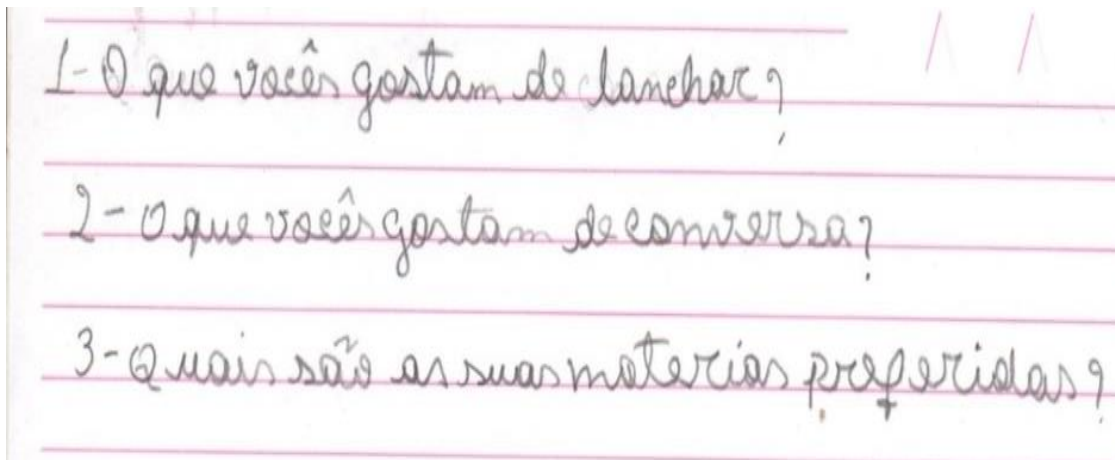 1-O que vocês gostam de lanchar?
2-O que vocês gostam de conversa?
3-Quais são as suas materias preferidas?